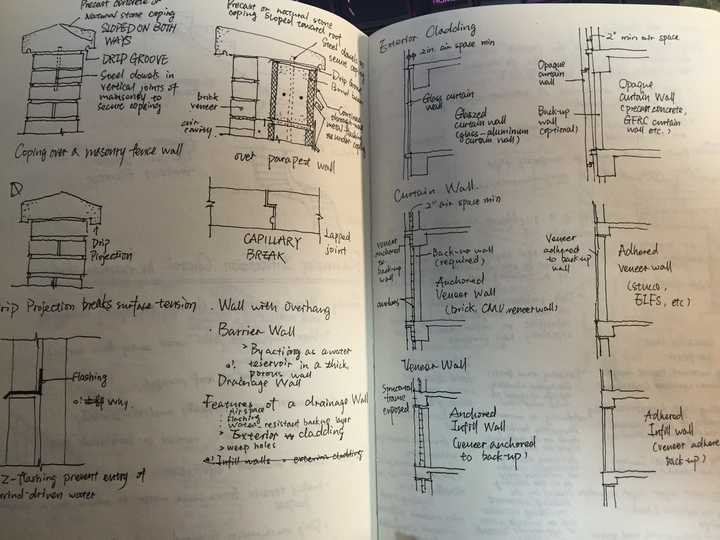 Precast concrete or
Natural stone coping
SLOPED ON BOTH
WAYS
DRIP GROOVE
Steel dowels in
vertical joints of
masonry to
secure copking
Coping over a masonry fence wall
Precast or natural stone
coping sloped toward roof
Steel dowels
secure coping
Drip
brick
veneer
air
cavity
over parapet wall
Drip
Projection
CAPILLARY
BREAK
Lapped
joint
Drip Projection breaks surface tension
Flashing
why
Z-flashing prevent entry of
wind-driven water
Wall with overhang
Barrier Wall
> By acting as a water
reservoir in a thick
porous wall
Drainage Wall
Features of a drainage Wall
Air space
flashing
water-resistant backup layer
> Exterior cladding
> weep holes
Infill walls exterior cladding
Exterior Cladding
2in air space min
Glass curtain
wall
Glazed
curtain wall
(glass-aluminum
curtain wall)
2" min air space
Opaque
curtain
wall
Back-up
wall
(optional)
Opaque
curtain Wall
(precast concrete,
GFRC curtain
wall etc.)
Curtain Wall
2" air space min
veneer
anchored
to
back-up
wall
Back-up wall
(required)
Anchored
Veneer Wall
(brick, CMU, veneer wall)
anchors
Veneer
adhered
to back-up
wall
Adhered
veneer wall
(stucco,
EIFS, etc)
Veneer Wall
Structural
frame
exposed
Anchored
Infill Wall
(veneer anchored
to back-up)
Adhered
Infill wall
(veneer adhere
back-up)